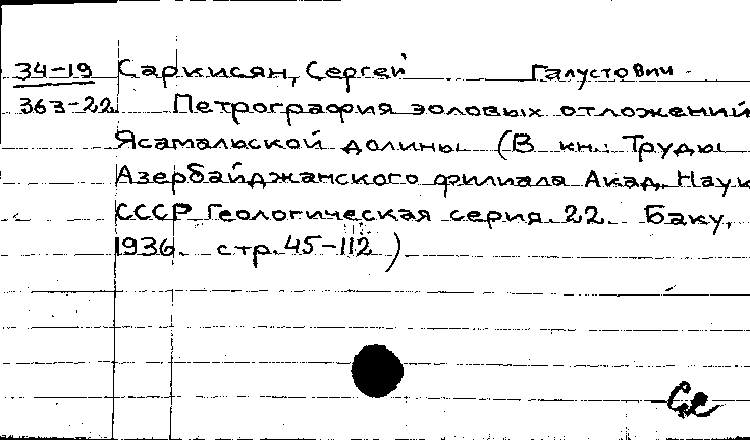 34-19 Саркисян, Сергей Галустович
363-22 Петрография эоловых отложений
Ясамальской долины (В кн.: Труды
Азербайджанского филиала Акад. Наук
СССР Геологическая серия. 22. Баку,
1936. стр. 45-112)